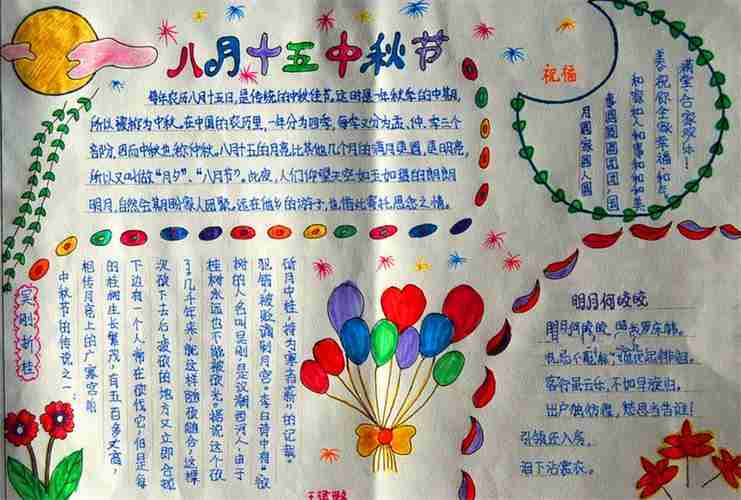 八月十五中秋节
每年农历八月十五日,是传统的中秋佳节。这时是一年秋季的中期,
所以被称为中秋。在中国的农历里,一年分为四季,每季又分为孟、仲、季三个
部分,因而中秋也称仲秋。八月十五的月亮比其他几个月的满月更圆,更明亮,
所以又叫做“月夕”、“八月节”。此夜,人们仰望天空如玉如盘的朗朗
明月,自然会期盼家人团聚。远在他乡的游子,也借此寄托思念之情。
祝福
满堂合家欢乐!
美祝你全家幸福和气
和家和人和事和和和美
事圆圆圆团团圆,国
月圆家圆人圆
吴刚折桂
中秋节的传说之一:
相传月亮上的广寒宫前
的桂树生长繁茂,有五百多丈高,
下边有一个人常在砍伐它,但是每
次砍下去后,被砍的地方又立即合拢
了。几千年来,就这样随砍随合,这棵
桂树永远也不能被砍光。据说这个砍
树的人名叫吴刚,是汉朝西河人,由于
犯错被贬谪到月宫。李白诗中有“欲
斫月中桂,持为寒者薪”的记载。
明月何皎皎
明月何皎皎,照我罗床帏。
忧愁不能寐,揽衣起徘徊。
客行虽云乐,不如早旋归。
出户独彷徨,愁思当告谁!
引领还入房,
泪下沾裳衣。